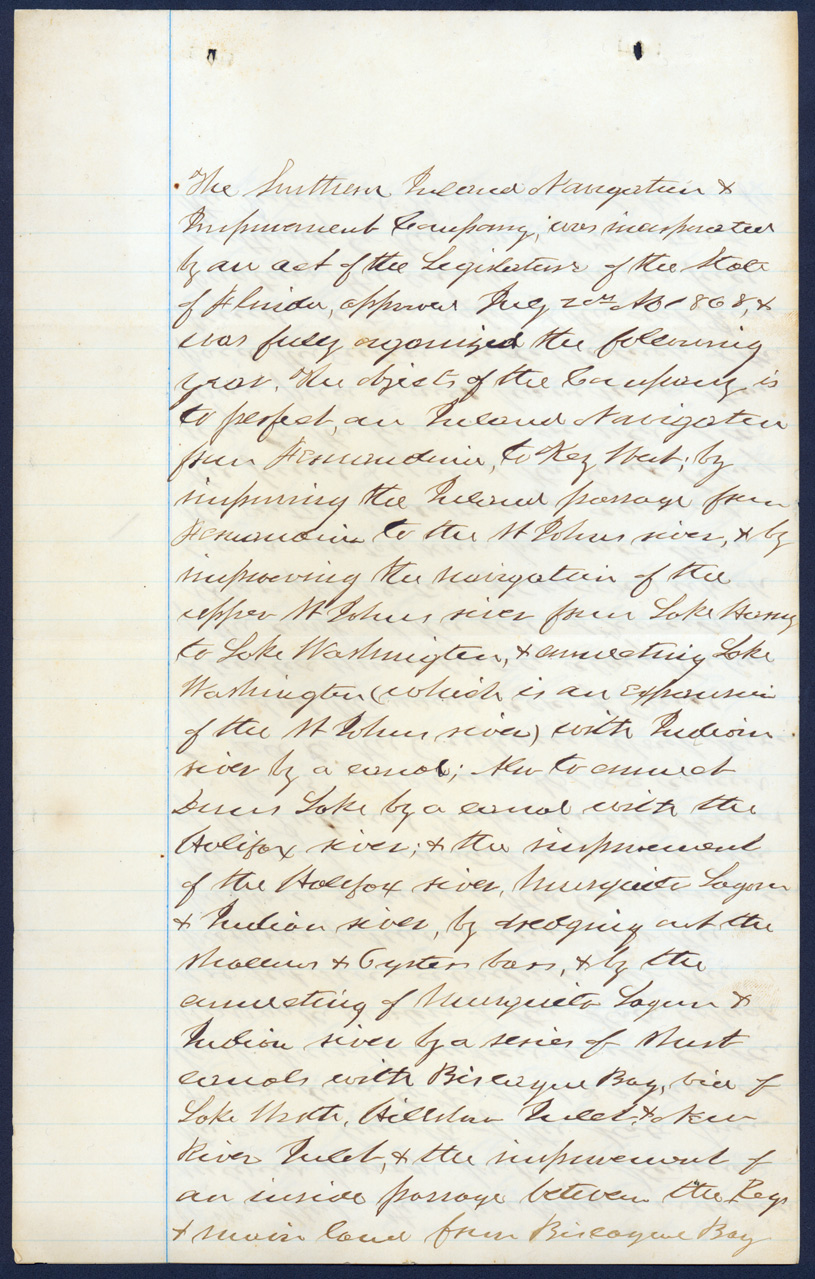 The Southern Inland Navigation &
Improvement Company, was incorporated
by an act of the Legislature of the State
of Florida, approved July 2nd AD 1868, &
was fully organized the following
year. The objects of the Company is
to perfect, an Inland Navigation
from Fernandina, to Key West; by
improving the Inland passage from
Fernandina to the St Johns river, & by
improving the navigation of the
upper St Johns river from Lake Harney
to Lake Washington, & connecting Lake
Washington (which is an Expansion
of the St Johns river) with Indian
river by a canal; Also to connect
Dunns Lake by a canal with the
Halifax river; & the improvement
of the Halifax river, Musquito Lagoon
& Indian river, by dredging out the
shallows & Oysters bars, & by the
connecting of Musquito Lagoon &
Indian river by a series of short
canals with Biscayne Bay, via of
Lake Worth, Hillsboro Inlet, & New
River Inlet, & the improvement of
an inside passage between the Keys
& main land from Biscayne Bay